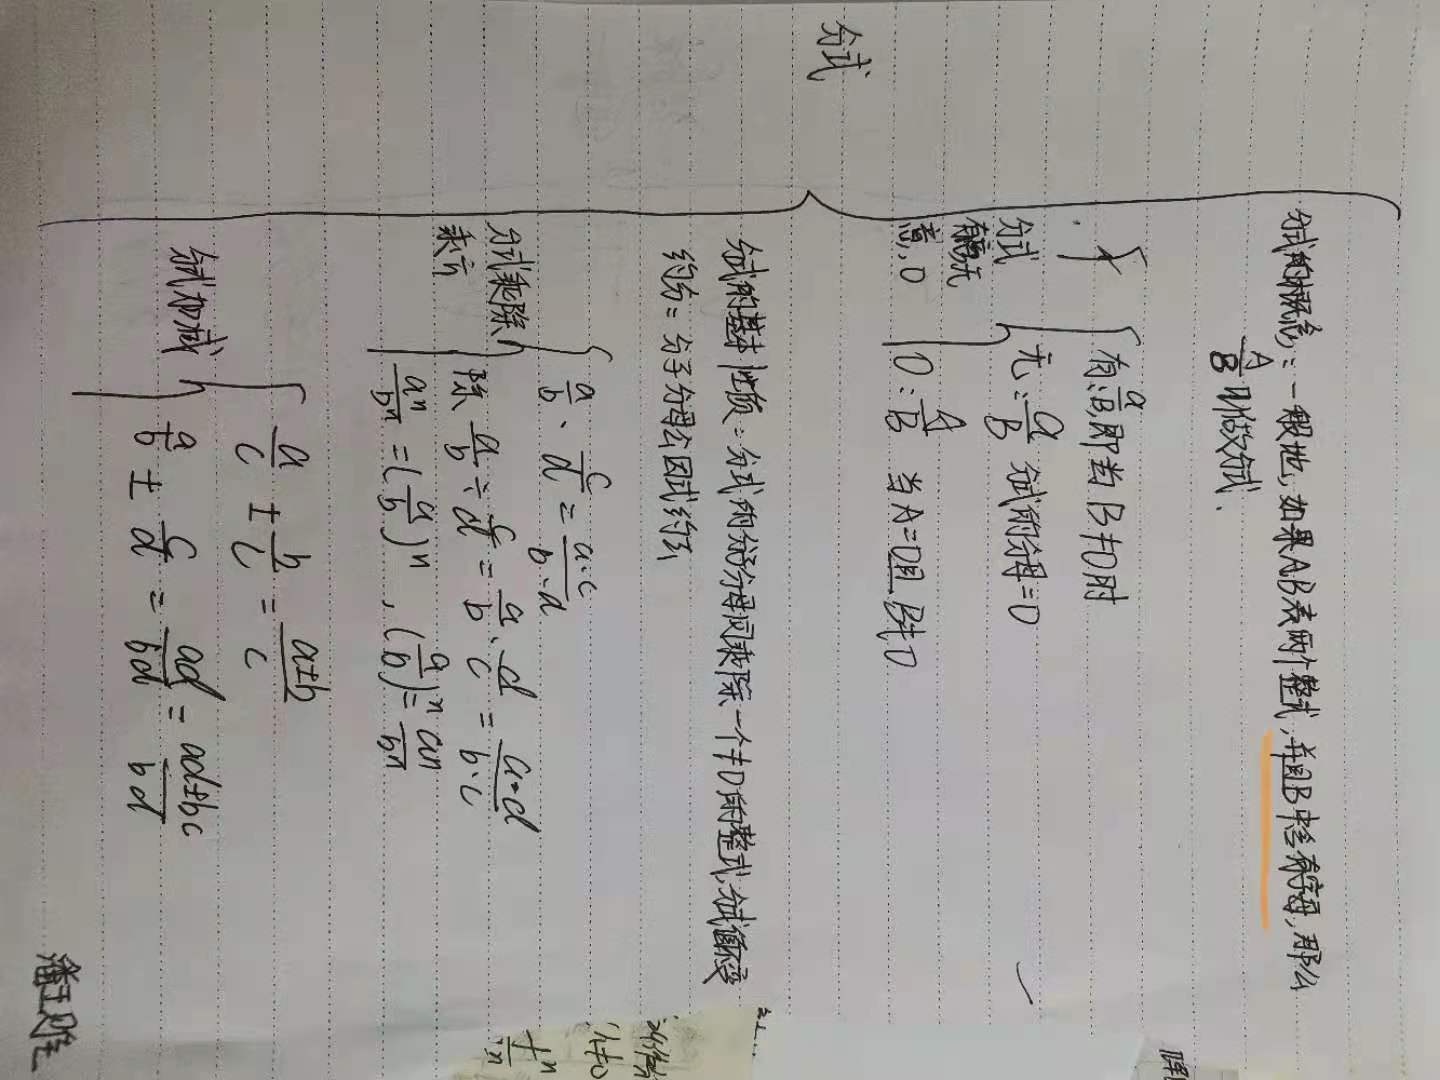 分式的概念:一般地,如果A,B表两个整式,并且B中含有字母,那么
A/B 叫做分式.
分式
有意,无
意,0
有:a/B,即当B≠0时
无:a/B 分式的分母=0
0:A/B 当A=0且B≠0
分式
分式的基本性质:分式的分子分母同乘除一个≠0的整式,分式值不变
约分=分子分母公因式约去
分式乘除
乘方
a/b · c/d = a·c/b·d
除 a/b ÷ c/d = a/b · d/c = a·d/b·c
aⁿ/bⁿ = (a/b)ⁿ , (a/b)ⁿ = an/bⁿ
分式加减
a/c ± b/c = a±b/c
a/b ± c/d = ad/bd = ad±bc/bd
≠0